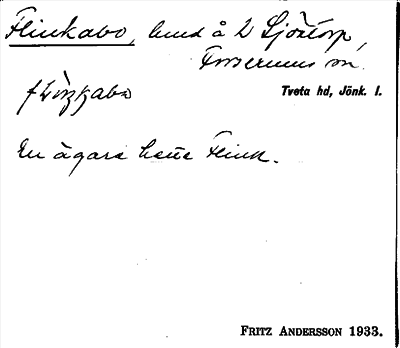 Flinkabo, lund å L Sjötorp,
Forserums sn.
Tveta hd, Jönk. l.
En ägare hette Flink.
FRITZ ANDERSSON 1933.